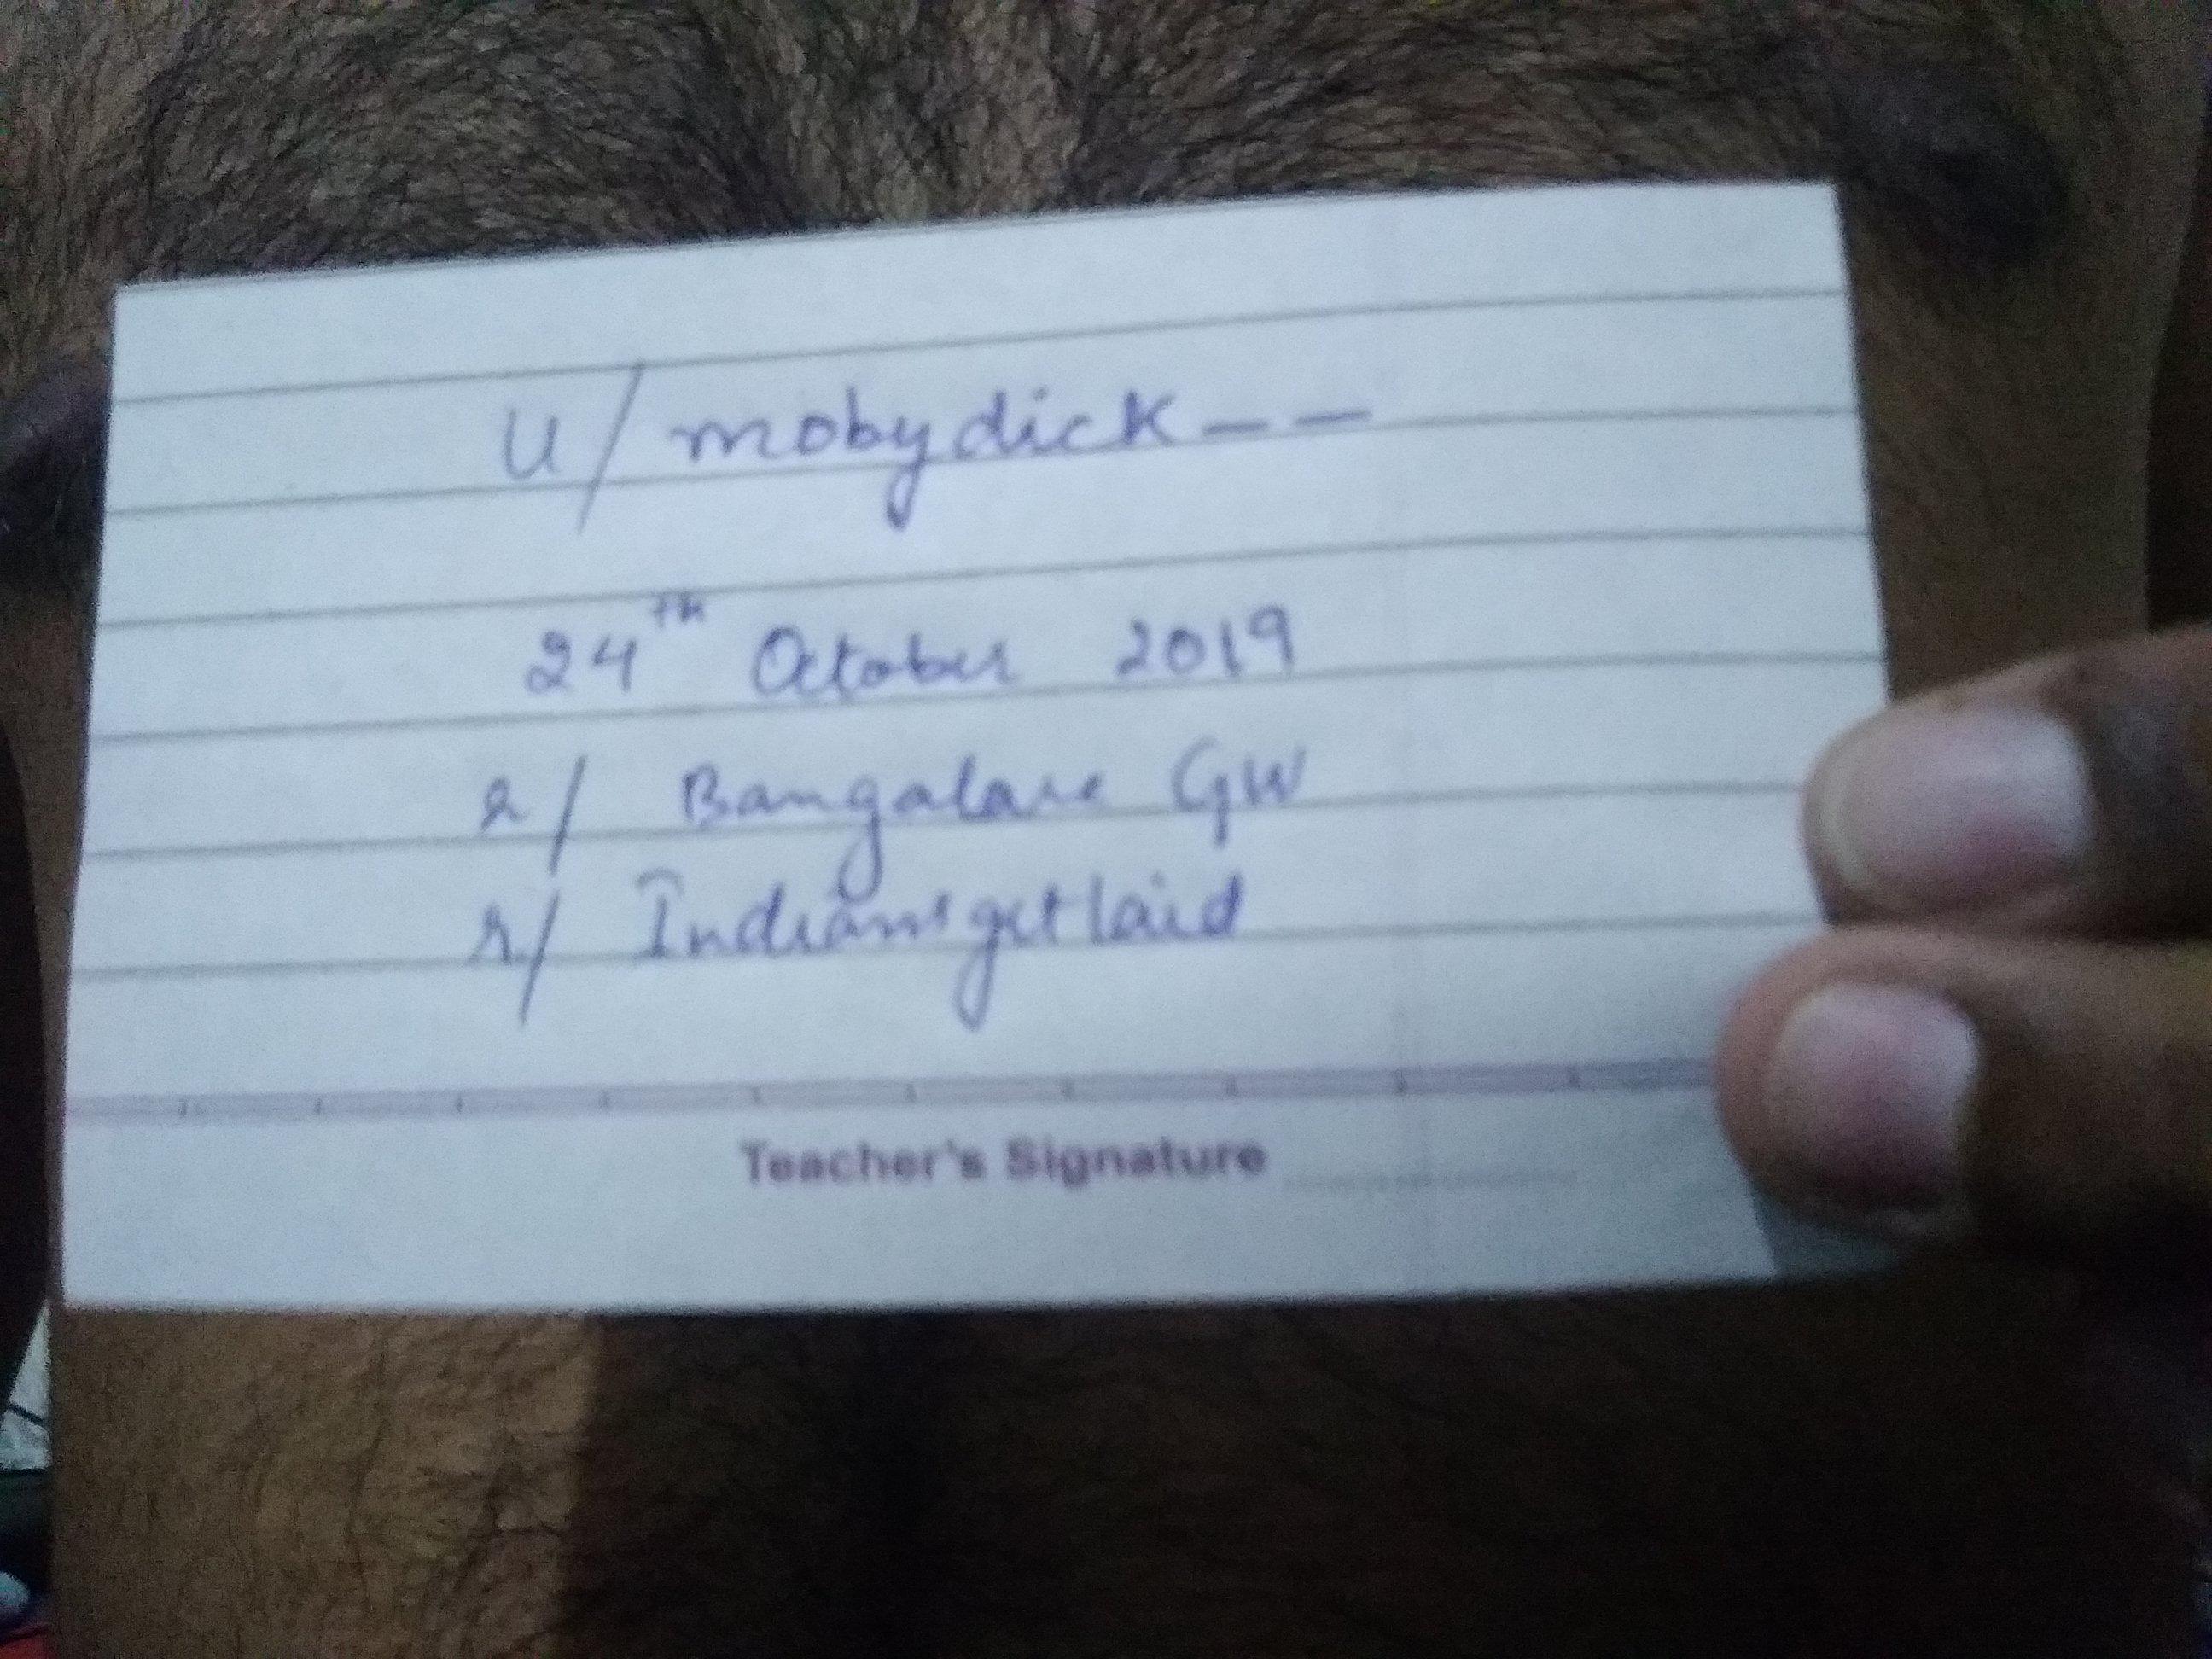 u/mobydick--
24th October 2019
r/ Bangalore GW
r/ Indiansgetlaid
Teacher's Signature